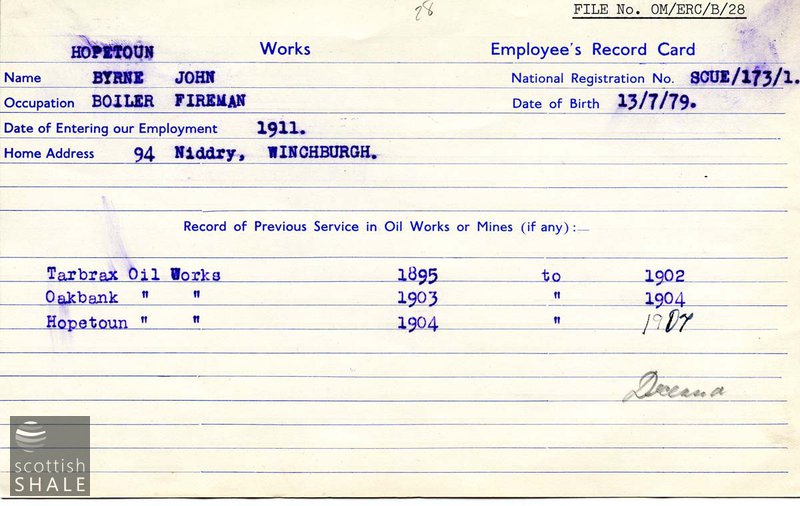 28
FILE No. OM/ERC/B/28
HOPETOUN Works Employee's Record Card
Name BYRNE JOHN National Registration No. SCUE/173/1.
Occupation BOILER FIREMAN Date of Birth 13/7/79.
Date of Entering our Employment 1911.
Home Address 94 Niddry, WINCHBURGH.
Record of Previous Service in Oil Works or Mines (if any):—
Tarbrax Oil Works 1895 to 1902
Oakbank " " 1903 " 1904
Hopetoun " " 1904 "
scottish
SHALE